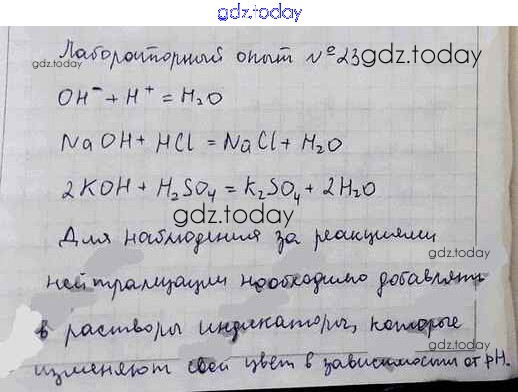 gdz.today
Лабораторный опыт №23
gdz.today
gdz.today
OH⁻ + H⁺ = H₂O
NaOH + HCl = NaCl + H₂O
2KOH + H₂SO₄ = K₂SO₄ + 2H₂O
gdz.today
Для наблюдения за реакциями
gdz.today
нейтрализации необходимо добавлять
в растворы индикаторы, которые
gdz.today
изменяют свой цвет в зависимости от pH.